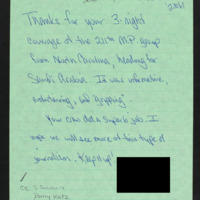 2061
Thanks for your 3-night
coverage of the 211th M.P. group
from North Carolina, heading for
Saudi Arabia. It was informative,
entertaining, and gripping.
Your crew did a superb job. I
hope we will see more of this type of
journalism. Keep it up!
cc:
Danny Katz